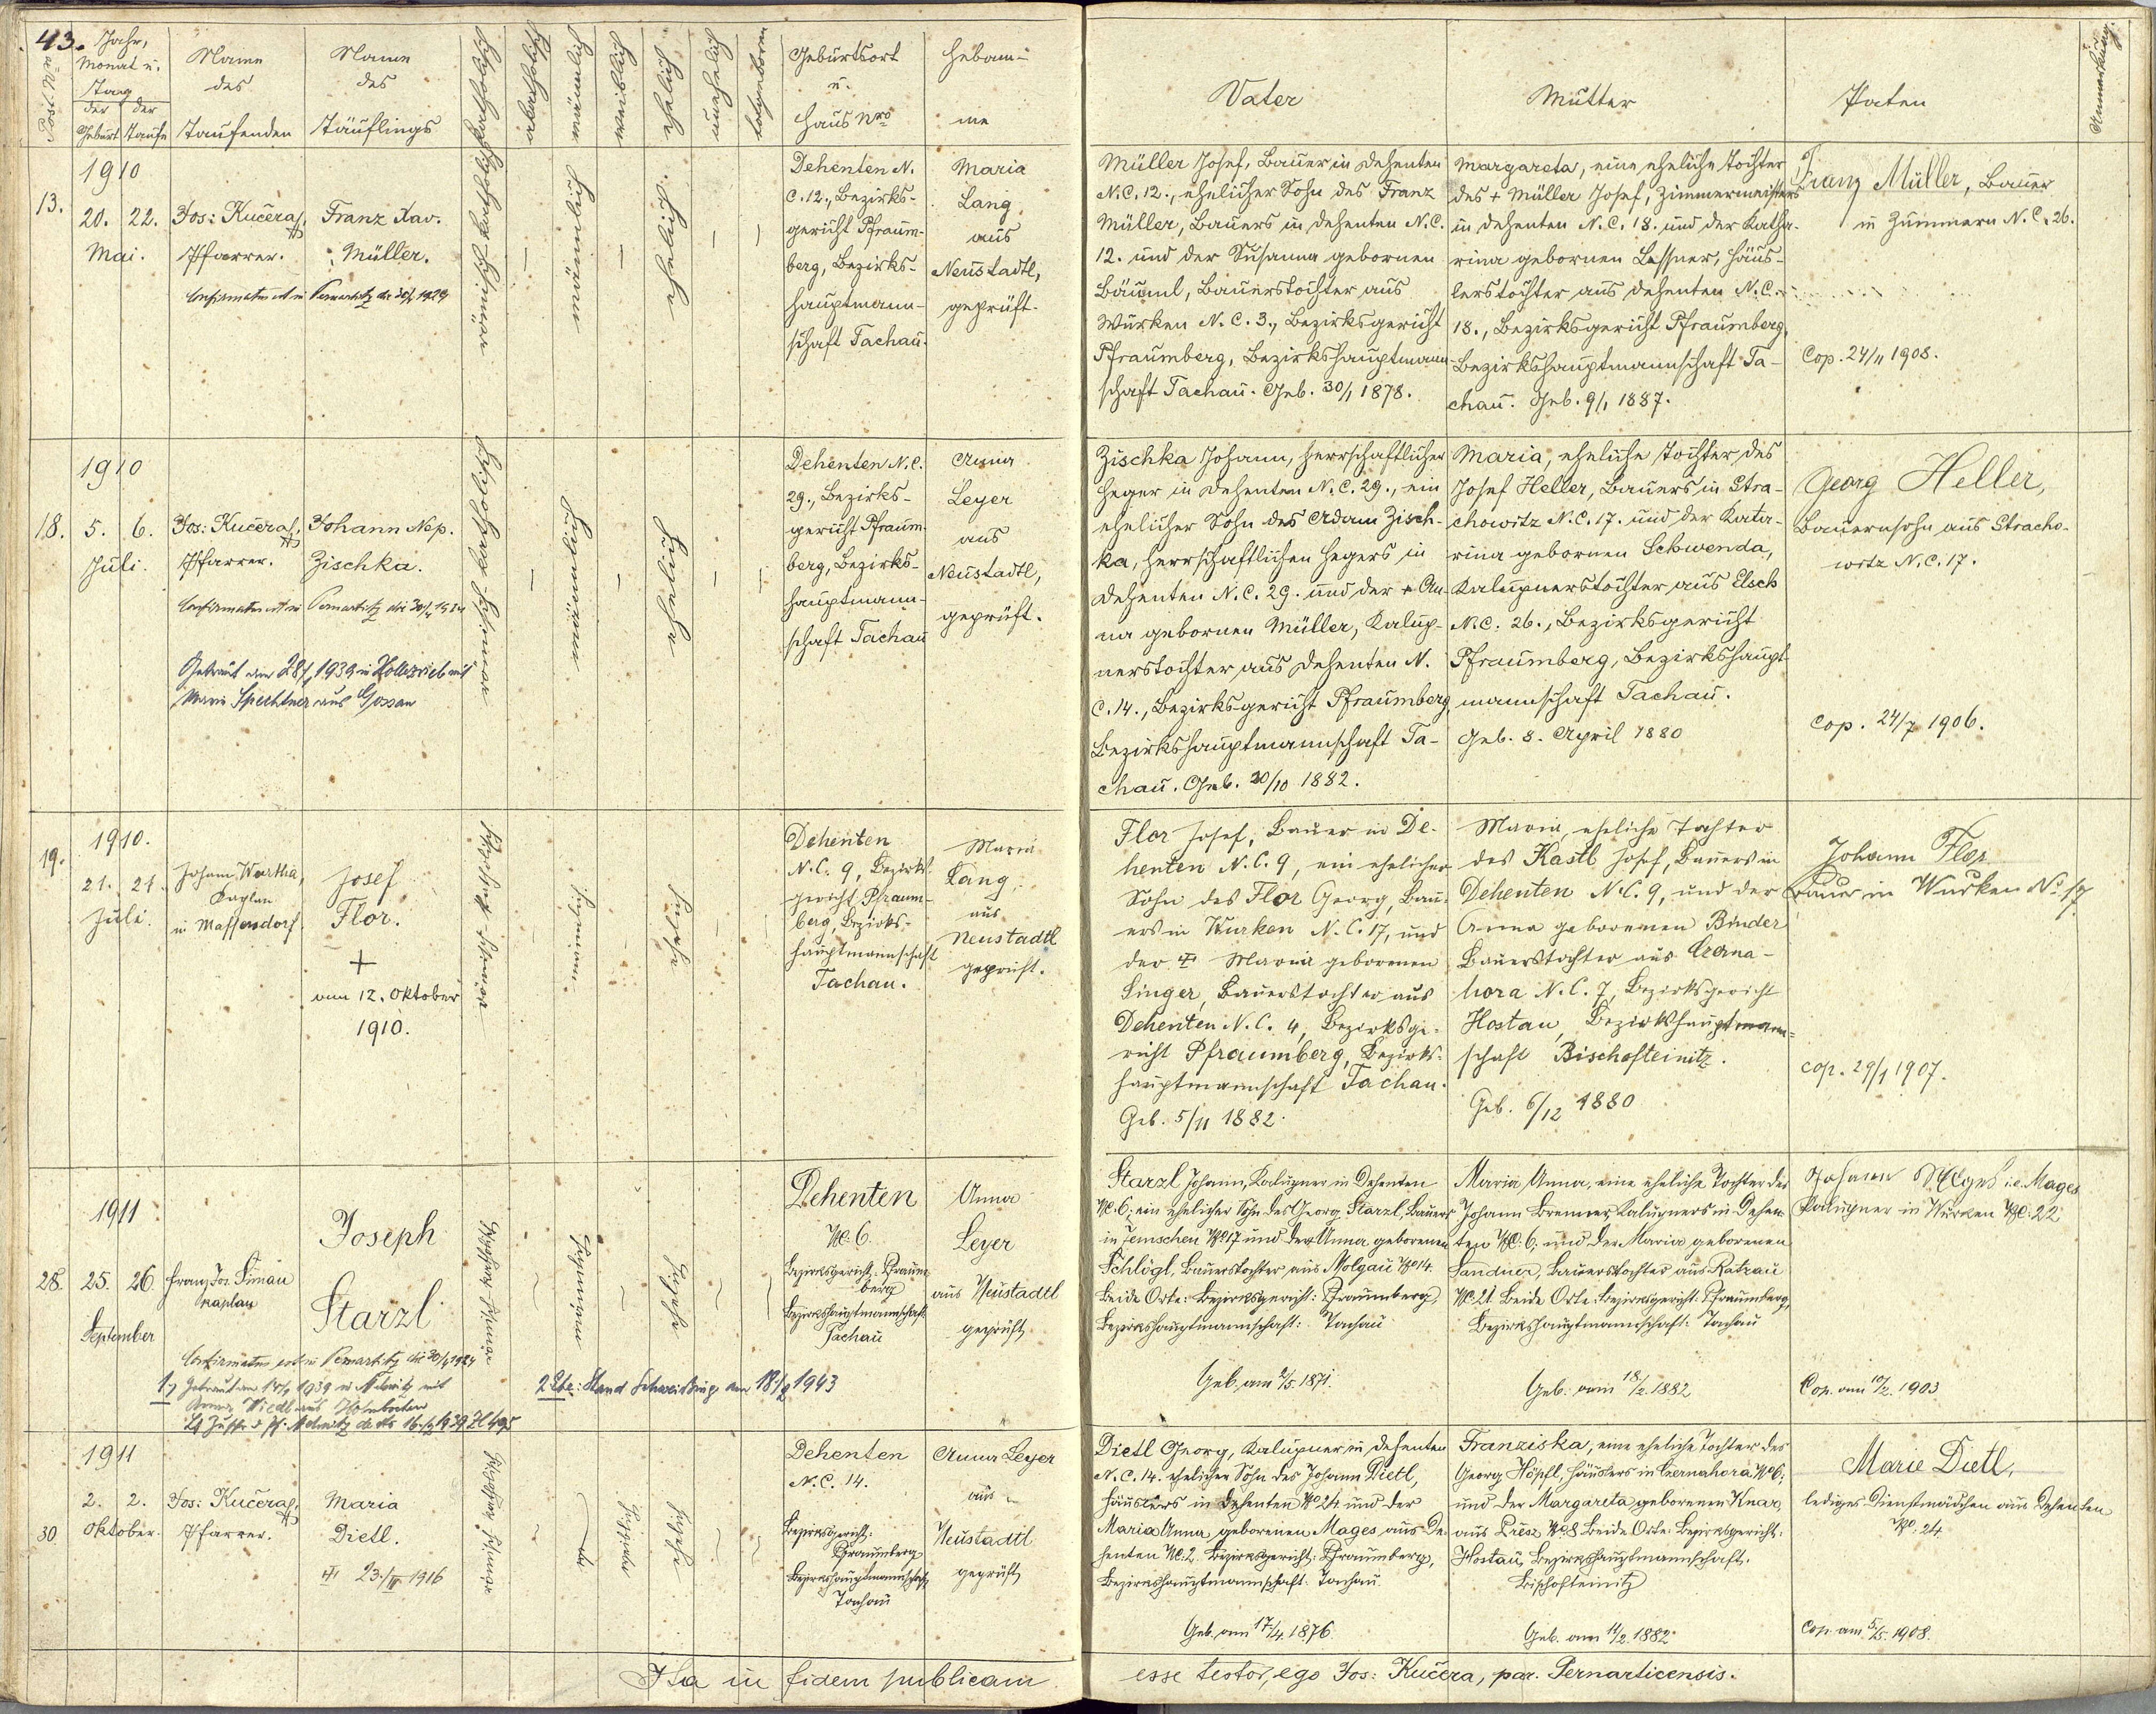 43.
Post-Nro
Jahr,
Monat u.
Tag
der Geburt
der Taufe
Name
des
Taufenden
Name
des
Täuflings
katholisch
akatholisch
männlich
weiblich
ehelich
unehelich
todtgeboren
Geburtsort
u.
Haus Nro
Hebam-
me
Vater
Mutter
Paten
Anmerkung
13.
1910
20. 22.
Mai.
Jos: Kučera,
Pfarrer.
Franz Xav.
Müller.
Confirmatus est in Pernartitz die 30/ 1924
römisch-katholisch
männlich
ehelich.
Dehenten N.
C. 12., Bezirks-
gericht Pfraum-
berg, Bezirks-
hauptmann-
schaft Tachau.
Maria
Lang
aus
Neustadtl,
geprüft.
Müller Josef, Bauer in Dehenten
N.C. 12., ehelicher Sohn des Franz
Müller, Bauers in Dehenten N.C.
12. und der Susanna gebornen
Bäuml, Bauerstochter aus
Wurken N.C. 3., Bezirksgericht
Pfraumberg, Bezirkshauptmann-
schaft Tachau. Geb. 30/1 1878.
Margareta, eine eheliche Tochter
des + Müller Josef, Zimmermeisters
in Dehenten N.C. 18. und der Katha-
rina gebornen Lessner, Häus-
lerstochter aus Dehenten N.C.
18., Bezirksgericht Pfraumberg,
Bezirkshauptmannschaft Ta-
chau. Geb. 9/1 1887.
Franz Müller, Bauer
in Zummern N.C. 26.
Cop. 24/11 1908.
18.
1910
5. 6.
Juli.
Jos: Kučera,
Pfarrer.
Johann Nep.
Zischka.
Confirmatus est in Pernartitz die 30/ 1924
Getraut am 28/ 1939 in Kollerrieb mit
Maria Spechtner aus Gossau
römisch-katholisch
männlich
ehelich
Dehenten N.C.
29., Bezirks-
gericht Pfraum-
berg, Bezirks-
hauptmann-
schaft Tachau
Anna
Leyer
aus
Neustadtl,
geprüft.
Zischka Johann, herrschaftlicher
Heger in Dehenten N.C. 29., ein
ehelicher Sohn des Adam Zisch-
ka, herrschaftlichen Hegers in
Dehenten N.C. 29. und der + An-
na gebornen Müller, Kalup-
nerstochter aus Dehenten N.
C. 14., Bezirksgericht Pfraumberg,
Bezirkshauptmannschaft Ta-
chau. Geb. 30/10 1882.
Maria, eheliche Tochter des
Josef Heller, Bauers in Stra-
chowitz N.C. 17. und der Kata-
rina gebornen Schwenda,
Kalupnerstochter aus Elsch
N.C. 26., Bezirksgericht
Pfraumberg, Bezirkshaupt-
mannschaft Tachau.
Geb. 8. April 1880
Georg Heller,
Bauernsohn aus Stracho-
witz N.C. 17.
Cop. 24/7 1906.
19.
1910.
21. 21.
Juli.
Johann Wartha,
Kaplan
in Maffersdorf.
Josef
Flor.
+
am 12. Oktober
1910.
römisch-katholisch
männlich
ehelich
Dehenten
N.C. 9, Bezirks-
gericht Pfraum-
berg, Bezirks-
hauptmannschaft
Tachau.
Maria
Lang,
aus
Neustadtl
geprüft.
Flor Josef, Bauer in De-
henten N.C. 9, ein ehelicher
Sohn des Flor Georg, Bau-
ers in Wurken N.C. 17, und
der + Maria geborenen
Singer, Bauerstochter aus
Dehenten N.C. 4, Bezirksge-
richt Pfraumberg, Bezirks-
hauptmannschaft Tachau.
Geb. 5/11 1882.
Maria, eheliche Tochter
des Kastl Josef, Bauers in
Dehenten N.C. 9, und der
Anna geborenen Binder
Bauerstochter aus Černa-
hora N.C. 7, Bezirksgericht
Hostau, Bezirkshauptmann-
schaft Bischofteinitz.
Geb. 6/12 1880
Johann Flor
Bauer in Wurken No 17.
Cop. 29/1 1907.
28.
1911
25. 26.
September
Franz Jos. Simau
Kaplan
Joseph
Starzl
Confirmatus est in Pernartitz die 30/ 1924
1) Getraut am 14/ 1939 in Melmitz mit
2 Ehe: Stand Schweißing am 18/ 1943
römisch-katholisch
männlich
ehelich
Dehenten
No. 6.
Bezirksgericht: Pfraum-
berg
Bezirkshauptmannschaft:
Tachau
Anna
Leyer
aus Neustadtl
geprüft
Starzl Johann, Kalupner in Dehenten
No. 6; ein ehelicher Sohn des Georg Starzl, Bauers
in Jemschen No 17 und der Anna geborenen
Schlögl, Bauerstochter aus Molgau No 14.
Beide Orte: Bezirksgericht: Pfraumberg,
Bezirkshauptmannschaft: Tachau
Geb. am 2/5. 1871.
Maria Anna, eine eheliche Tochter des
Johann Brenner, Kalupners in Dehen-
ten No. 6; und der Maria geborenen
Sandner, Bauerstochter aus Ratzau
No. 21. Beide Orte: Bezirksgericht: Pfraumberg,
Bezirkshauptmannschaft: Tachau
Geb. am 18/2. 1882
Johann i.e. Mages
Kalupner in Wurken No: 22
Cop. am 10/2. 1903
30
1911
2. 2.
Oktober.
Jos: Kučera,
Pfarrer.
Maria
Dietl.
+ 23./IV 1916
römisch-katholisch
weiblich
ehelich
Dehenten
N.C. 14.
Bezirksgericht:
Pfraumberg
Bezirkshauptmannschaft,
Tachau
Anna Leyer
aus
Neustadtl
geprüft
Dietl Georg, Kalupner in Dehenten
N.C. 14. ehelicher Sohn des Johann Dietl,
Häuslers in Dehenten No 24 und der
Maria Anna geborenen Mages aus De-
henten No. 2. Bezirksgericht: Pfraumberg,
Bezirkshauptmannschaft: Tachau.
Geb. am 17/4. 1876.
Franziska, eine eheliche Tochter des
Georg Höpfl, Häuslers in Černahora No 6;
und der Margareta geborenen Knar,
aus No 8 Beide Orte: Bezirksgericht:
Hostau, Bezirkshauptmannschaft.
Bischofteinitz
Geb. am 11/2. 1882
Marie Dietl,
lediges Dienstmädchen aus Dehenten
No. 24.
Cop. am 5/5. 1908.
Ita in fidem publicam esse testor, ego Jos: Kučera, par. Pernarticensis.